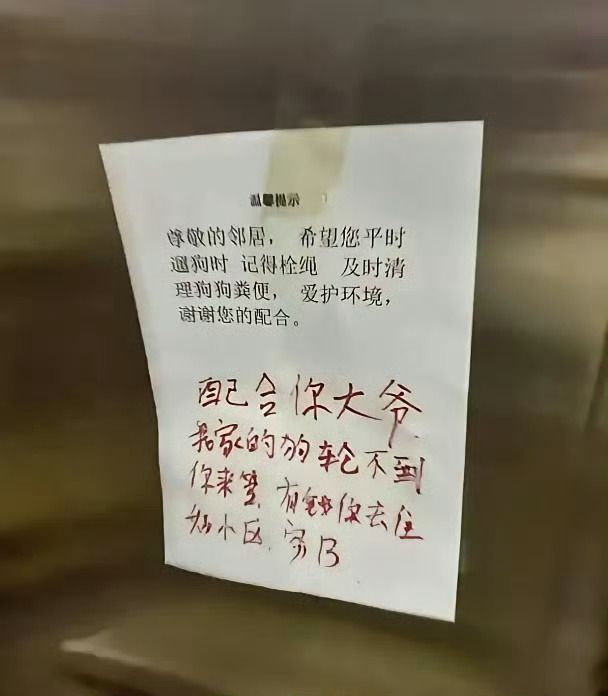 温馨提示
尊敬的邻居， 希望您平时
遛狗时 记得栓绳 及时清
理狗狗粪便， 爱护环境，
谢谢您的配合。
配合你大爷
我家的狗轮不到
你来管，有钱你去住
别小区，穷B